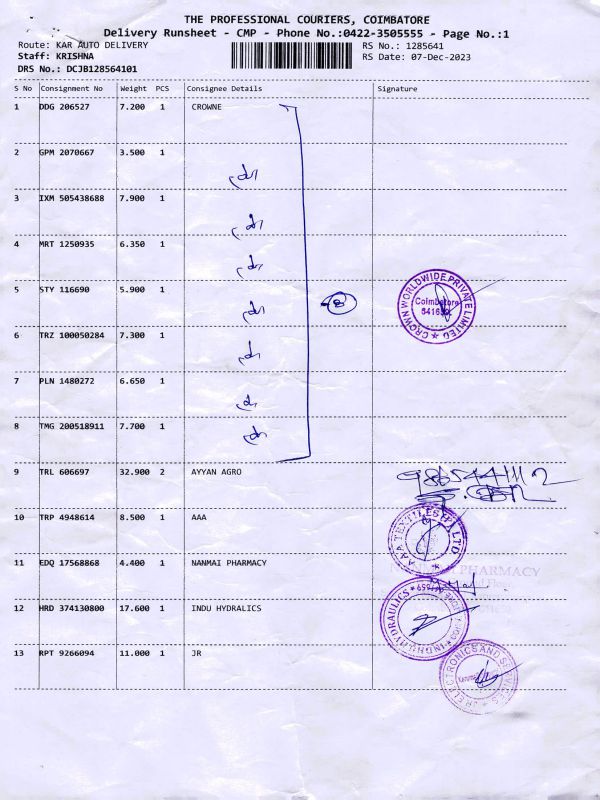 THE PROFESSIONAL COURIERS, COIMBATORE
Delivery Runsheet - CMP - Phone No.:0422-3505555 - Page No.:1
Route: KAR AUTO DELIVERY RS No.: 1285641
Staff: KRISHNA RS Date: 07-Dec-2023
DRS No.: DCJB128564101
S No Consignment No Weight PCS Consignee Details Signature
1 DDG 206527 7.200 1 CROWNE
2 GPM 2070667 3.500 1
3 IXM 505438688 7.900 1
4 MRT 1250935 6.350 1
5 STY 116690 5.900 1
8
CROWN WORLDWIDE PRIVATE LIMITED
Coimbatore
6 TRZ 100050284 7.300 1
7 PLN 1480272 6.650 1
8 TMG 200518911 7.700 1
9 TRL 606697 32.900 2 AYYAN AGRO
10 TRP 4948614 8.500 1 AAA
AAA TEXTILES (P) LTD
11 EDQ 17568868 4.400 1 NANMAI PHARMACY
PHARMACY
12 HRD 374130800 17.600 1 INDU HYDRALICS
HYDRAULICS
13 RPT 9266094 11.000 1 JR
JR ELECTRONICS AND SERVICES